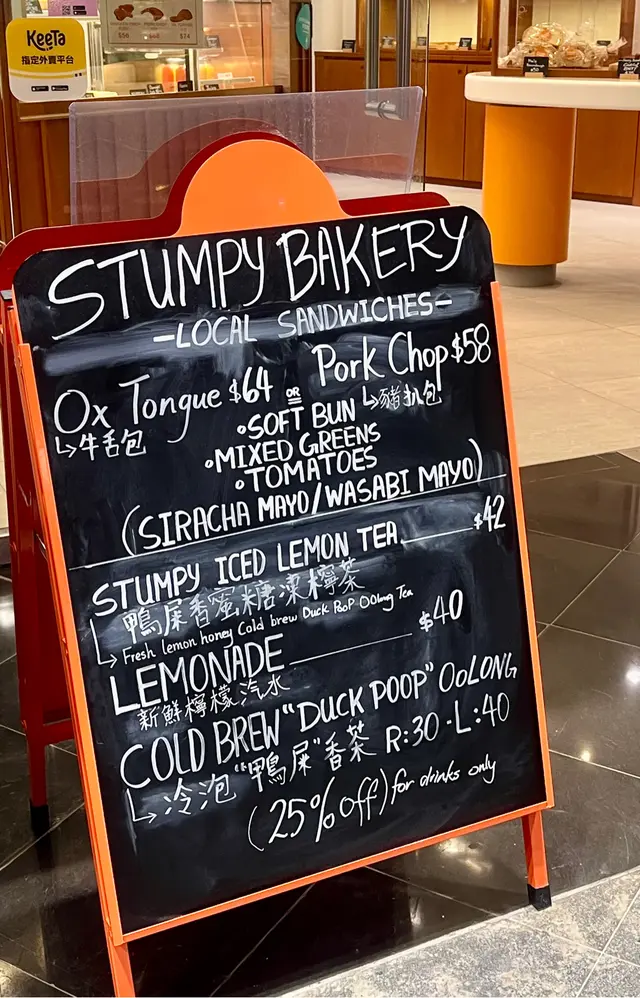 KeeTa
指定外賣平台
$56
$68
$74
STUMPY BAKERY
-LOCAL SANDWICHES-
Ox Tongue $64 OR Pork Chop $58
↳牛舌包 ↳豬扒包
•SOFT BUN
•MIXED GREENS
•TOMATOES
(SIRACHA MAYO/WASABI MAYO)
STUMPY ICED LEMON TEA $42
鴨屎香蜜糖凍檸茶
↳Fresh lemon honey Cold brew Duck PooP Oolong Tea
LEMONADE $40
新鮮檸檬汽水
COLD BREW "DUCK POOP" OOLONG
↳冷泡"鴨屎"香茶 R:30-L:40
(25% Off) for drinks only